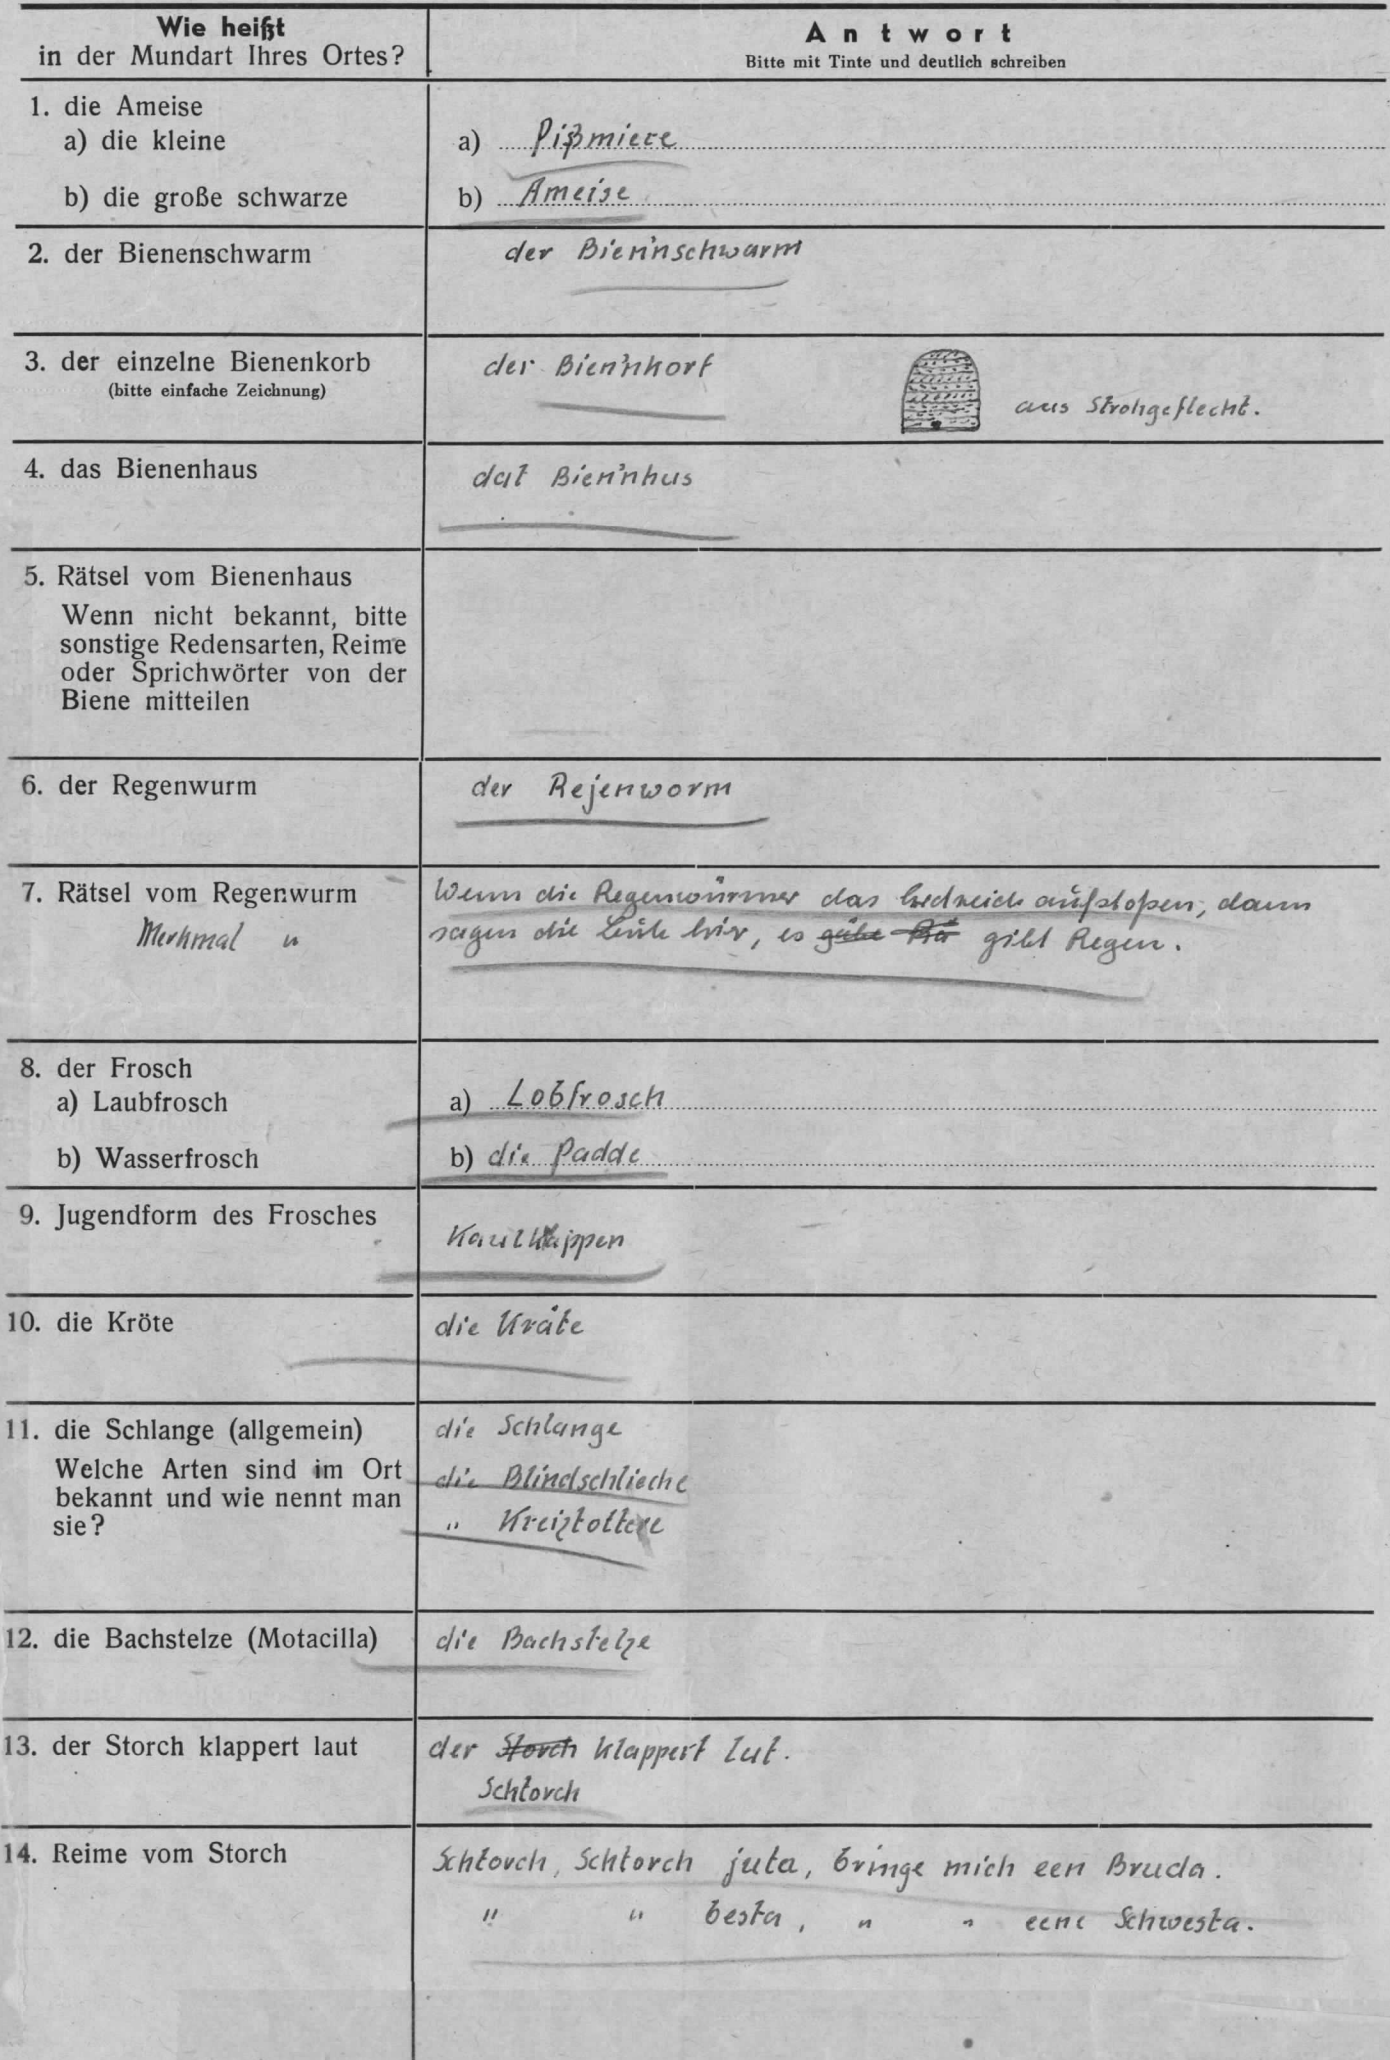 Wie heißt
in der Mundart Ihres Ortes?
Antwort
Bitte mit Tinte und deutlich schreiben
1. die Ameise
a) die kleine
a) Pißmiere
b) die große schwarze
b) Ameise
2. der Bienenschwarm
der Bien'nschwarm
3. der einzelne Bienenkorb
(bitte einfache Zeichnung)
der Bien'nkorf
aus Strohgeflecht.
4. das Bienenhaus
dat Bien'nhus
5. Rätsel vom Bienenhaus
Wenn nicht bekannt, bitte
sonstige Redensarten, Reime
oder Sprichwörter von der
Biene mitteilen
6. der Regenwurm
der Rejenworm
7. Rätsel vom Regenwurm
Merkmal "
Wenn die Regenwürmer das Erdreich aufstoßen, dann
sagen die Leute hier, es gäbe gibt Regen.
8. der Frosch
a) Laubfrosch
a) Lobfrosch
b) Wasserfrosch
b) die Padde
9. Jugendform des Frosches
Kaulkappen
10. die Kröte
die Kräte
11. die Schlange (allgemein)
Welche Arten sind im Ort
bekannt und wie nennt man
sie?
die Schlange
die Blindschlieche
" Kreizottere
12. die Bachstelze (Motacilla)
die Bachstelze
13. der Storch klappert laut
der Storch klappert lut.
Schtorch
14. Reime vom Storch
Schtorch, Schtorch juta, bringe mich een Bruda.
" " besta, " " eene Schwesta.